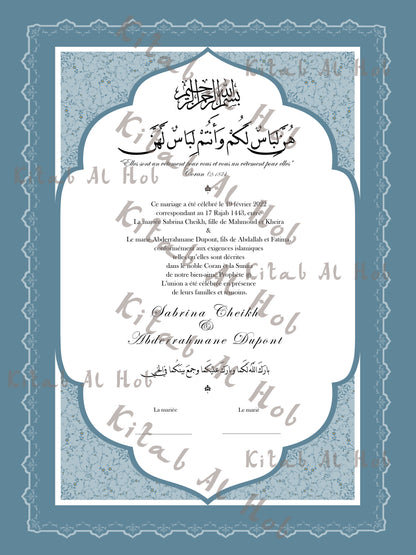 بسم الله الرحمن الرحيم
هُنَّ لِبَاسٌ لَكُمْ وَأَنْتُمْ لِبَاسٌ لَهُنَّ
"Elles sont un vêtement pour vous et vous un vêtement pour elles"
Coran
Ce mariage a été célébré le 19 février 2022
correspondant au 17 Rajab 1443, entre
La mariée Sabrina Cheikh, fille de Mahmoud et Kheira
&
Le marié Abderrahmane Dupont, fils de Abdallah et Fatima,
conformément aux exigences islamiques
telles qu'elles sont décrites
dans le noble Coran et la Sunna
de notre bien-aimé Prophète
L'union a été célébrée en présence
de leurs familles et témoins.
Sabrina Cheikh
&
Abderrahmane Dupont
بارك الله لكما وبارك عليكما وجمع بينكما في الخير
La mariée Le marié
Kitab Al Hob
Kitab Al Hob
Kitab Al Hob
Kitab Al Hob
Kitab Al Hob
Kitab Al Hob